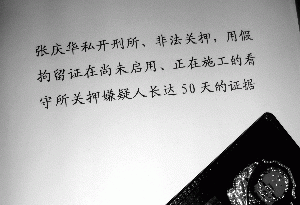 张庆华私开刑所、非法关押，用假
拘留证在尚未启用、正在施工的看
守所关押嫌疑人长达50天的证据